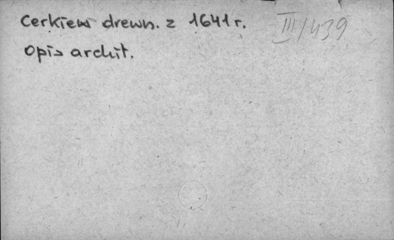 Cerkiew drewn. z 1641 r. III/439
Opis archit.